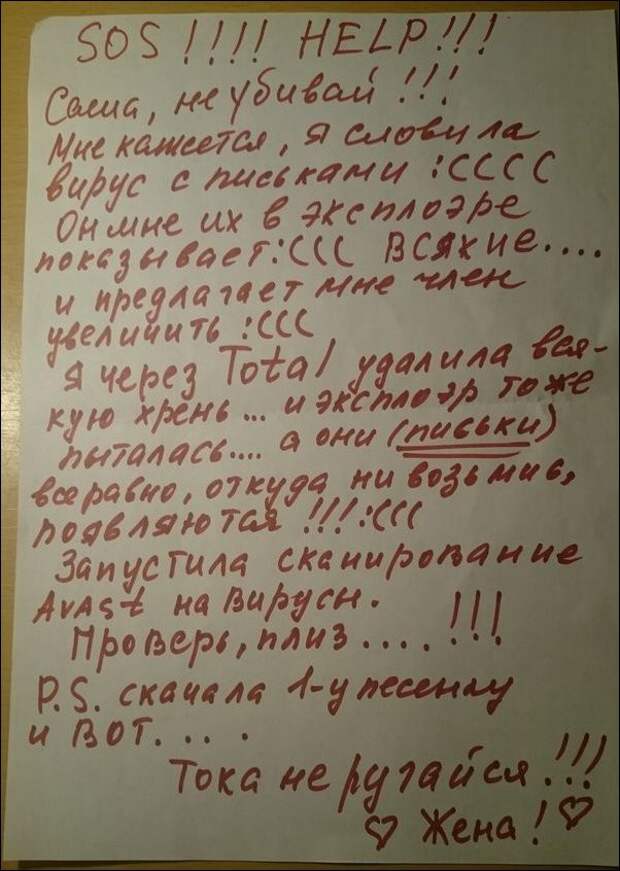 SOS !!!! HELP!!!
Саша, не убивай !!!
Мне кажется, я словила
вирус с письками :СССС
Он мне их в эксплоэре
показывает:ССС ВСЯКИЕ....
и предлагает мне член
увеличить :ССС
Я через Total удалила вся-
кую хрень... и эксплоэр тоже
пыталась.... а они (письки)
всеравно, откуда ни возьмись,
появляются !!!:ССС
Запустила сканирование
Avast на вирусы.
Проверь, плиз .... !!!
P.S. скачала 1-у песенку
и ВОТ....
Тока не ругайся !!!
♡ Жена! ♡